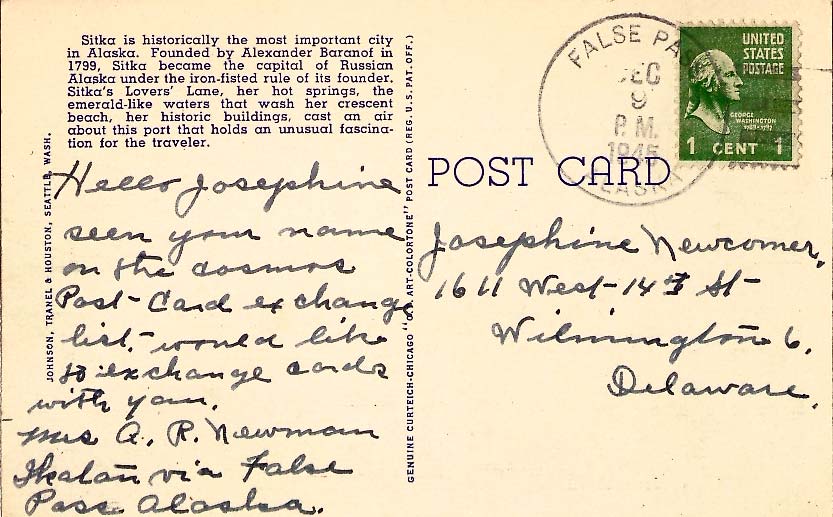 Sitka is historically the most important city
in Alaska. Founded by Alexander Baranof in
1799, Sitka became the capital of Russian
Alaska under the iron-fisted rule of its founder.
Sitka's Lovers' Lane, her hot springs, the
emerald-like waters that wash her crescent
beach, her historic buildings, cast an air
about this port that holds an unusual fascina-
tion for the traveler.
JOHNSON, TRANEL & HOUSTON, SEATTLE, WASH.
Hello Josephine
seen your name
on the cosmos
Post-Card exchange
list. would like
to exchange cards
with you.
Mrs A. R. Newman
Ikatan via False
Pass Alaska.
GENUINE CURTEICH-CHICAGO "C.T. ART-COLORTONE" POST CARD (REG. U.S. PAT. OFF.)
FALSE PA
DEC
9
P.M.
1945
ALASKA
UNITED
STATES
POSTAGE
GEORGE
WASHINGTON
1789-1797
1 CENT 1
POST CARD
Josephine Newcomer,
1611 West-14th St-
Wilmington 6,
Delaware.